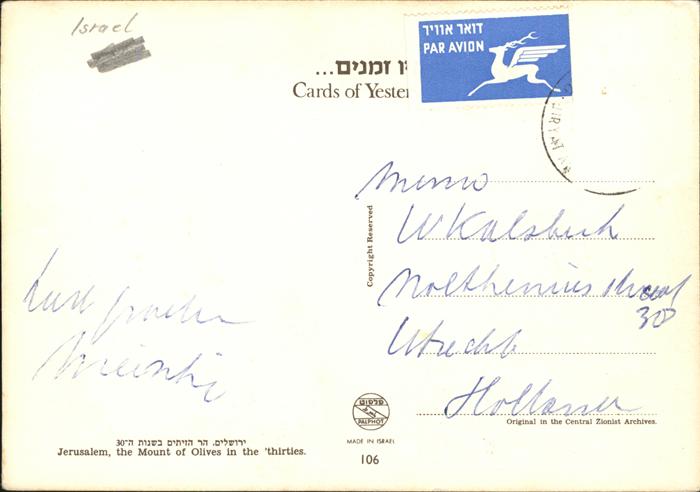 Israel
דואר אוויר
PAR AVION
ו זמנים...
Cards of Yester
Copyright Reserved
W Kalsbeek
Nolthenius straat
30
Utrecht
Holland
פלפוט
PALPHOT
Original in the Central Zionist Archives.
ירושלים. הר הזיתים בשנות ה־30
Jerusalem, the Mount of Olives in the 'thirties.
MADE IN ISRAEL
106